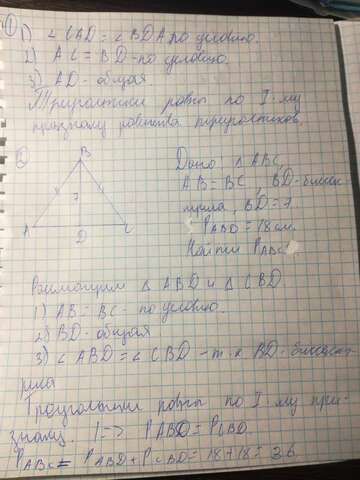 ① 1) ∠ CAD = ∠ BDA по условию.
2) AC = BD - по условию.
3) AD - общая.
Треугольники равны по I-му
признаку равенства треугольников.
②
B
7
A D C
Дано, △ ABC,
AB = BC, BD - биссек-
триса, BD = 7.
P ABD = 18 см.
Найти P ABC
Рассмотрим △ ABD и △ CBD
1) AB = BC - по условию.
2) BD - общая
3) ∠ ABD = ∠ CBD - т. к BD - биссект-
риса
Треугольники равны по I-му при-
знаку. => P ABD = P CBD
P ABC = P ABD + P CBD = 18 + 18 = 36